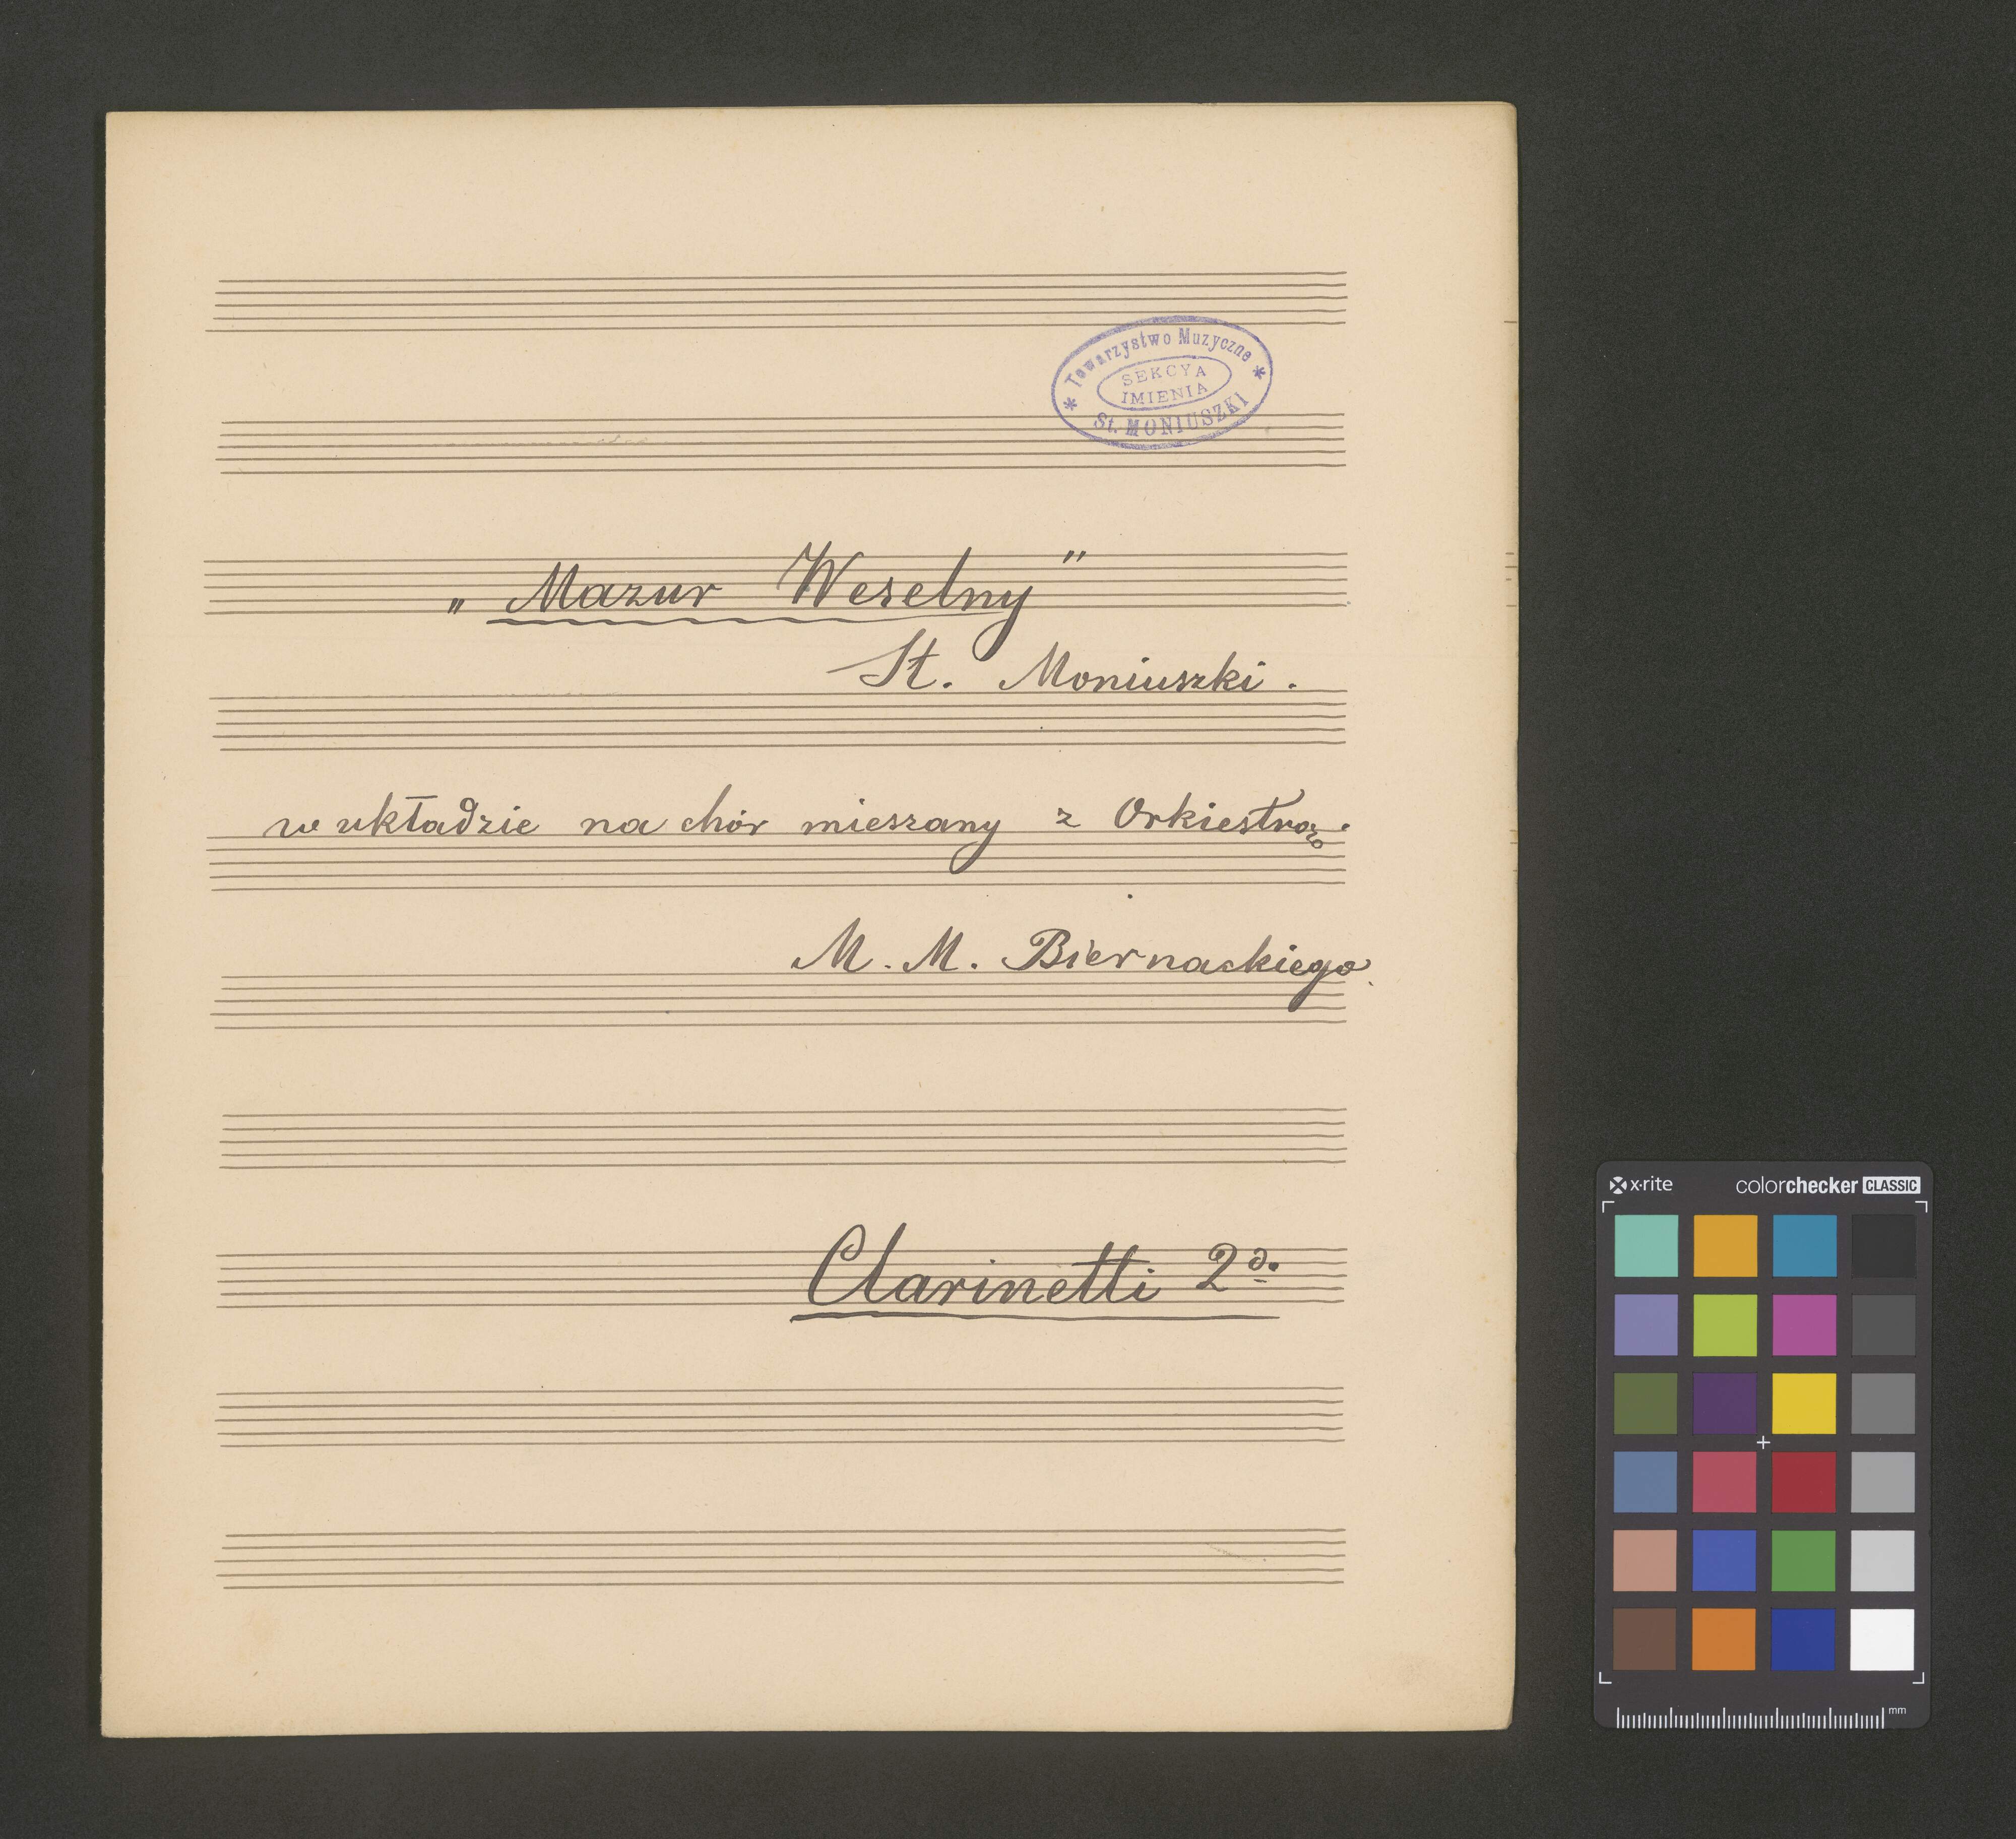 * Towarzystwo Muzyczne *
SEKCYA
IMIENIA
St. MONIUSZKI
„Mazur Weselny"
St. Moniuszki.
w układzie na chór mieszany z Orkiestrą.
M. M. Biernackiego.
Clarinetti 2do.
x·rite colorchecker CLASSIC
mm